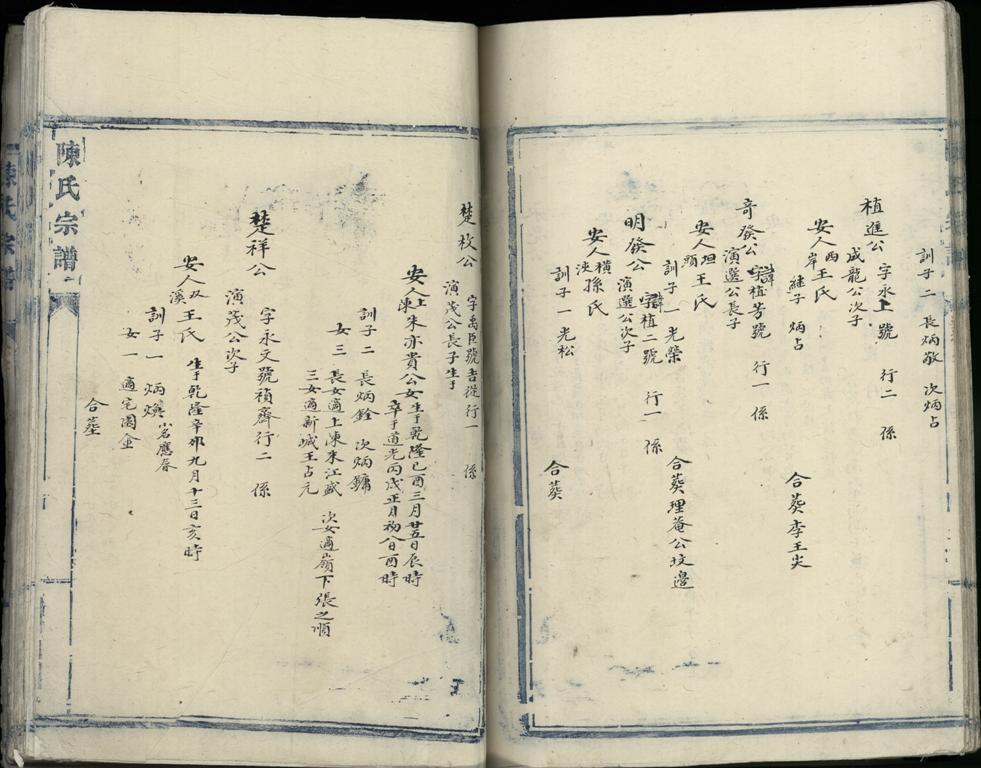 訓子二 長炳敬 次炳占
植進公 字永上號 行二 係
成龍公次子
安人西岸王氏 合葵李王尖
継子 炳占
奇發公 諱字植芳號 行一 係
演選公長子
安人坦頭王氏 合葵理菴公坟邊
訓子一光榮
明發公 諱字植二號 行一 係
演選公次子
安人橫浹孫氏
訓子一光松 合葵
楚枚公 字禹臣號吉從行一 係
演茂公長子生于
安人上湅朱亦貴公女生于乾隆己酉三月廿五日辰時
卒于道光丙戌正月初八日酉時
訓子二 長炳銓 次炳鏞
女三 長女適上湅朱江盛 次女適嶺下張之順
三女適新城王占元
楚祥公 字永文號禎齋行二 係
演茂公次子
安人双溪王氏 生于乾隆辛卯九月十三日亥時
訓子一 炳煥 小名應春
女一 適宅園金
合塟
陳氏宗譜